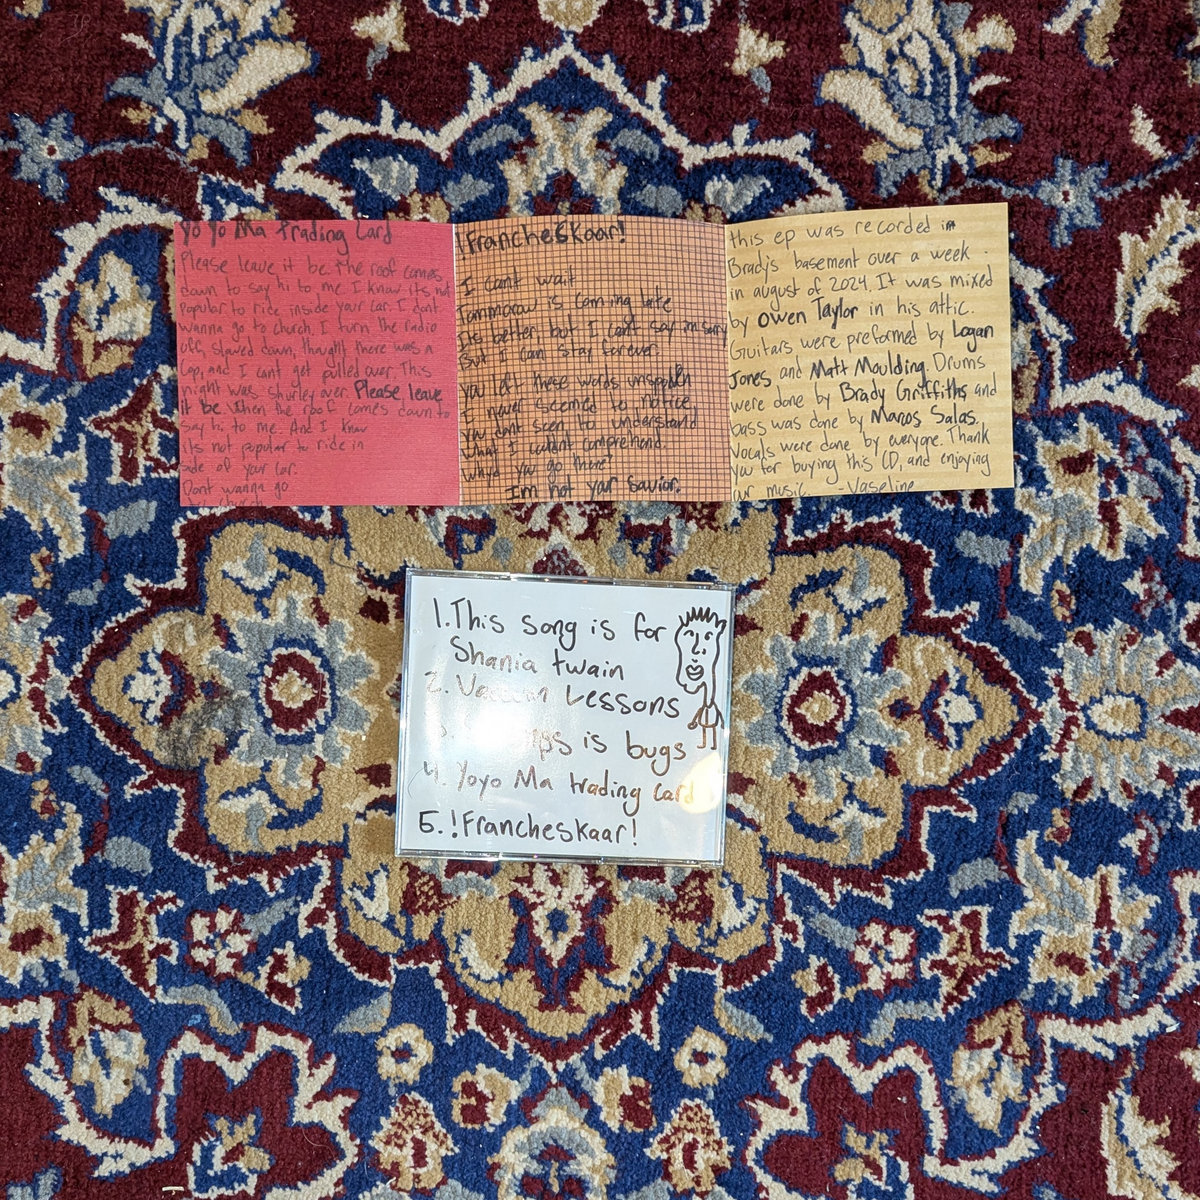 Yo Yo Ma trading Card
Please leave it be the roof comes
down to say hi to me I know its not
popular to ride inside your car. I dont
wanna go to church, I turn the radio
off, slowed down, thought there was a
Cop, and I cant get pulled over. This
night was shurley over. Please leave
it be when the roof comes down to
say hi to me. And I know
its not popular to ride in
side of your Car.
Dont wanna go
church
!Francheskaar!
I cant wait
Tommorow is coming late
Its better but I cant say im sorry
But I can stay forever.
you left these words unspoken
I never seemed to notice
You dont seem to understand
What I couldnt comprehend.
Why'd you go there?
Im not your savior.
this ep was recorded in
Bradys basement over a week
in august of 2024. It was mixed
by Owen Taylor in his attic.
Guitars were preformed by Logan
Jones and Matt Moulding. Drums
were done by Brady Griffiths and
bass was done by Marcos Salas.
Vocals were done by everyone. Thank
you for buying this CD, and enjoying
our music. -Vaseline
1. This song is for
Shania twain
2. Lessons
is bugs
4. Yoyo Ma trading Card
5. !Francheskaar!